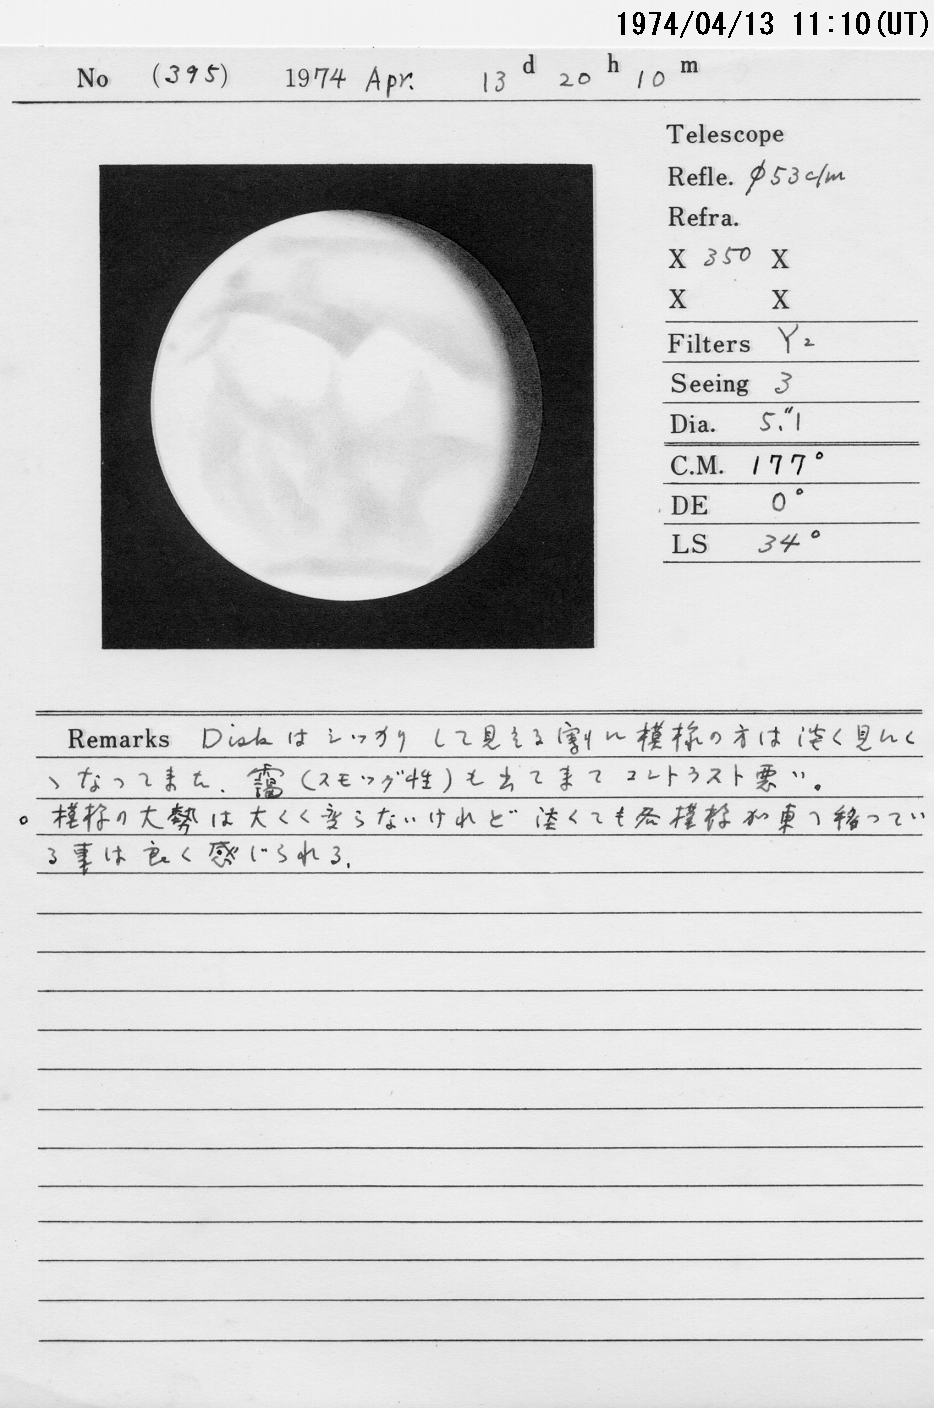 1974/04/13 11:10(UT)
No (395) 1974 Apr. 13 d 20 h 10 m
Telescope
Refle. φ53c/m
Refra.
X 350 X
X X
Filters Y2
Seeing 3
Dia. 5."1
C.M. 177°
DE 0°
LS 34°
Remarks Diskはシッカリして見える割に模様の方は淡く見にく
ゝなってきた、靄(スモッグ性)も出て来てコントラスト悪い。
。模様の大勢は大くく変らないけれど淡くても各模様が東へ移ってい
る事は良く感じられる。